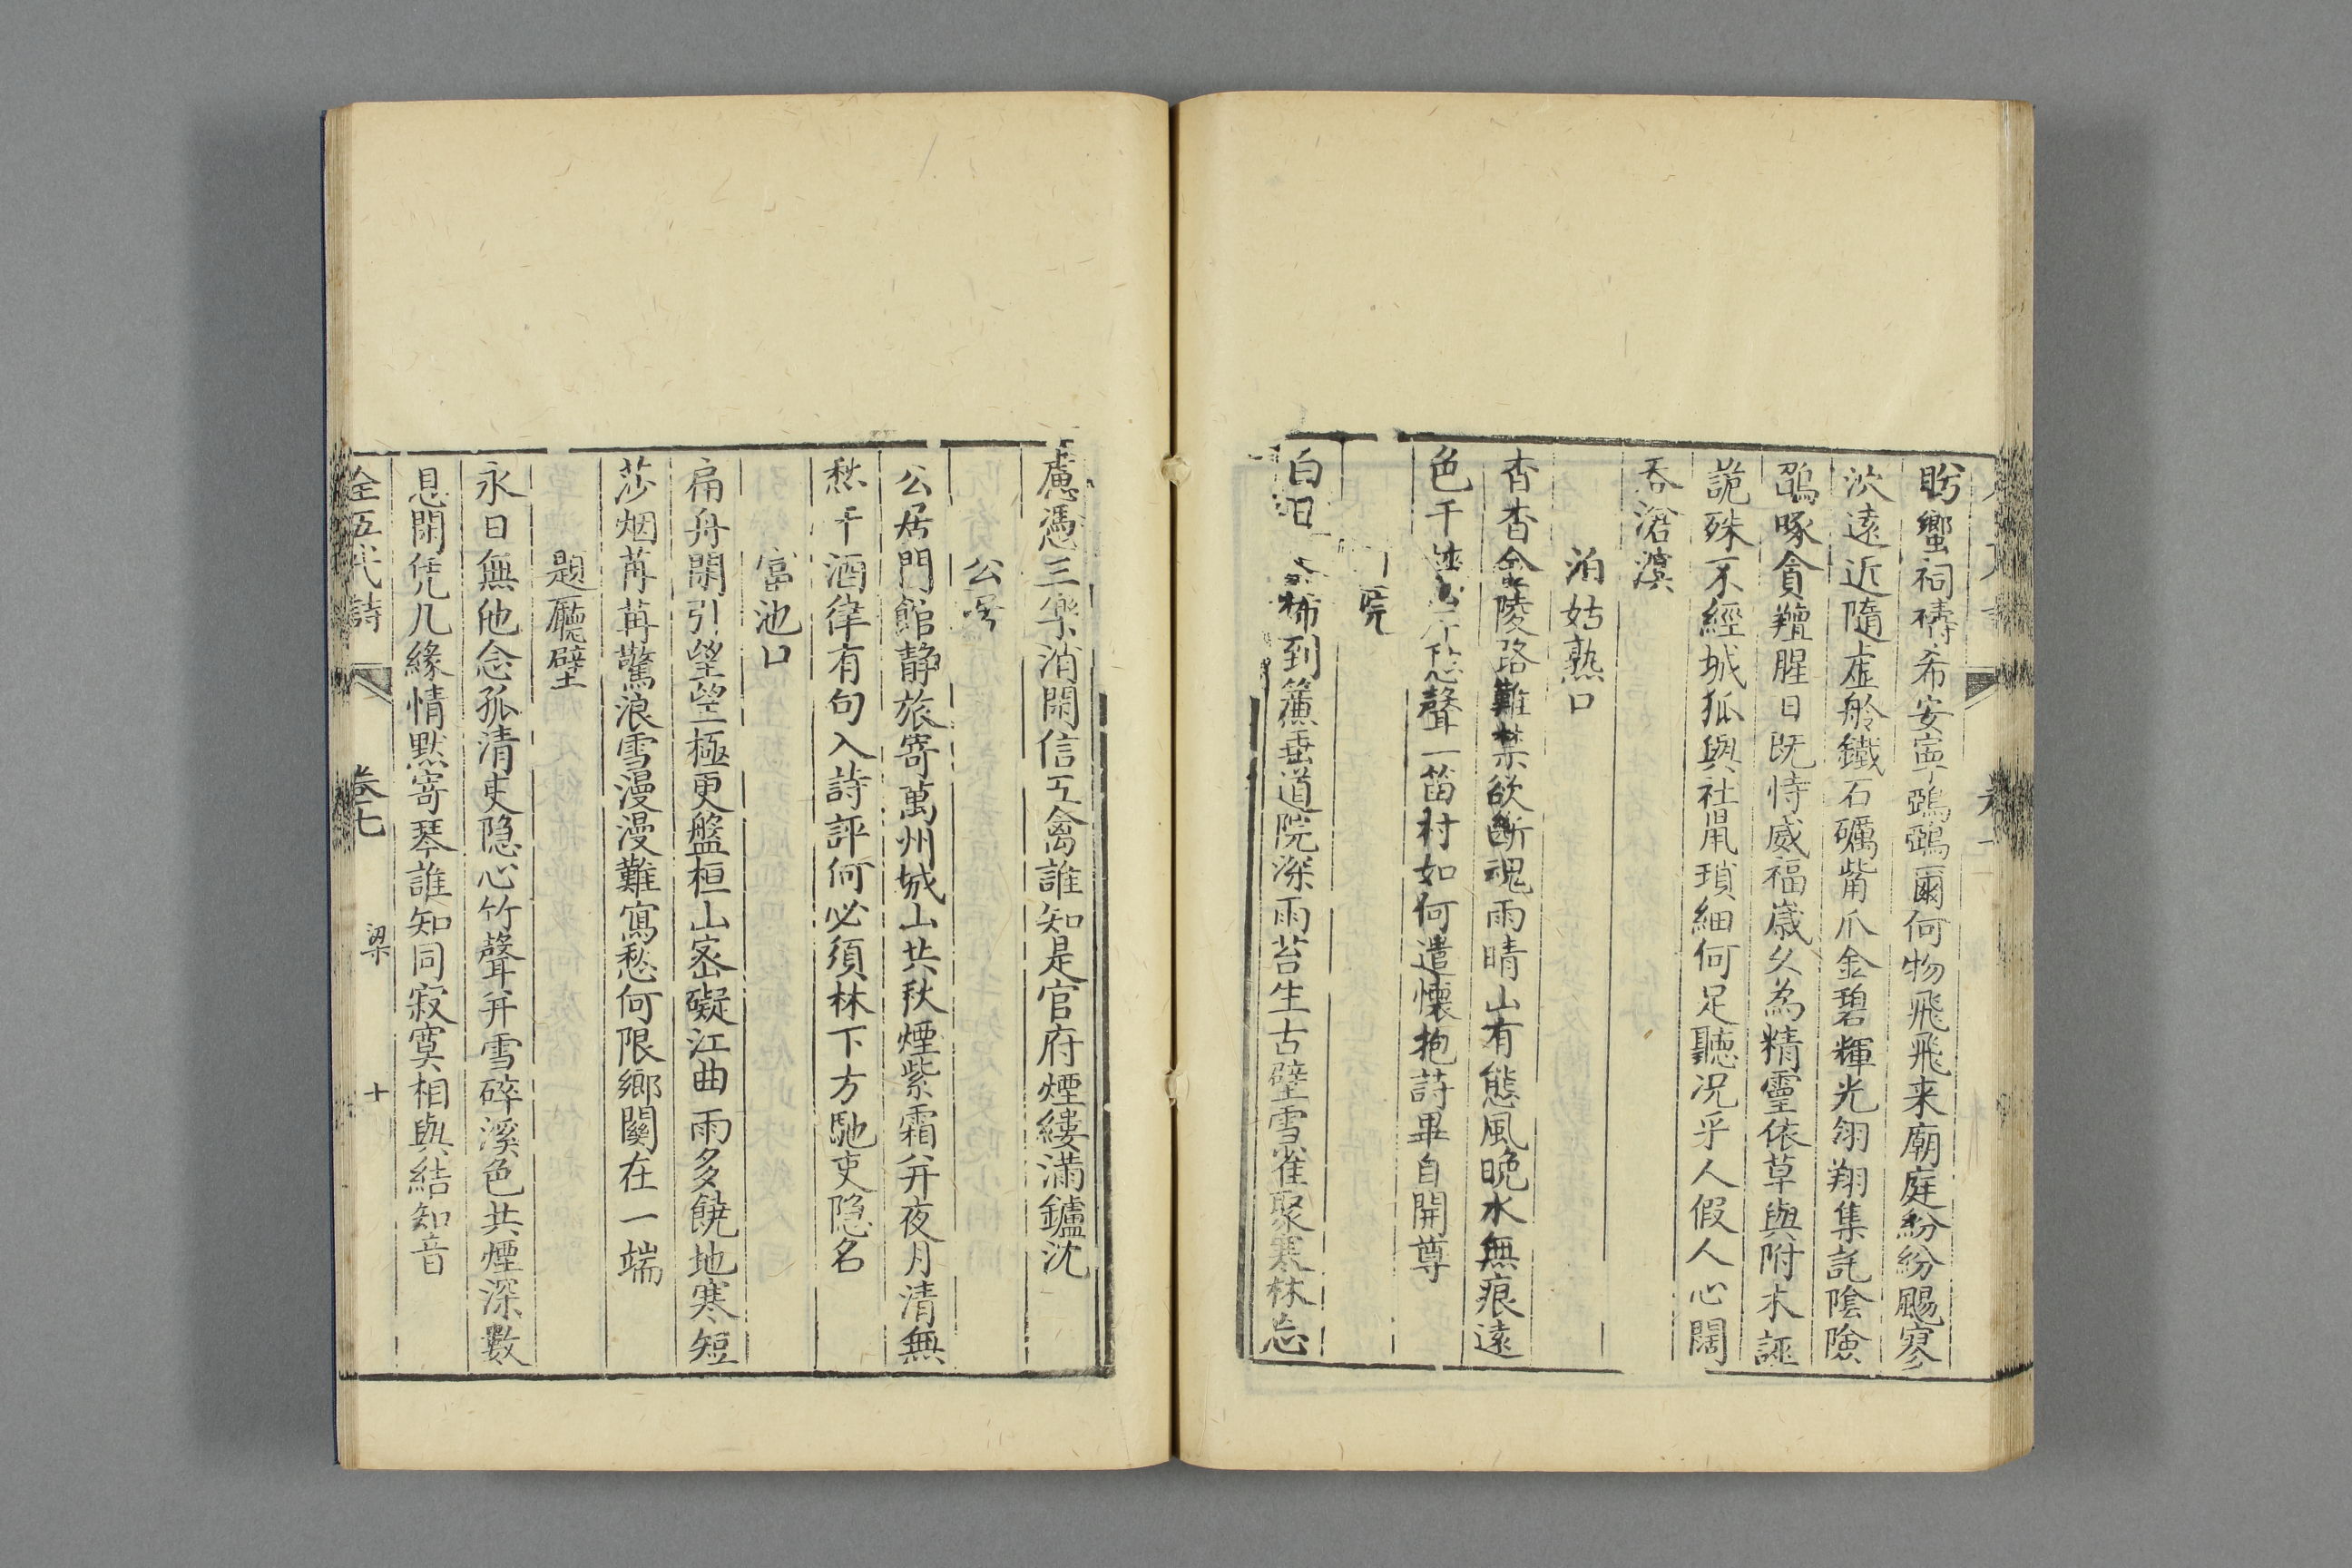 盻蠁祠禱希安寧鵶鵶爾何物飛飛来廟庭紛紛颺寥
泬遠近隨虚舲鐵石礪觜爪金碧輝光翎翔集託陰險
鵮啄貪羶腥日既恃威福歲久為精靈依草與附木誣
詭殊不經城狐與社鼠瑣細何足聽况乎人假人心闊
吞滄溟
泊姑熟口
杳杳金陵路難禁欲斷魂雨晴山有態風晚水無痕遠
色千聲一笛村如何遣懷抱詩畢自開尊
院
白日稀到簾垂道院深雨苔生古壁雪雀聚寒林忘
慮憑三樂消閑信五禽誰知是官府煙縷滿鑪沈
公居
公居門館静旅寄萬州城山共秋煙紫霜并夜月清無
愁干酒律有句入詩評何必須林下方馳吏隐名
富池口
扁舟閑引望望極更盤桓山密礙江曲雨多饒地寒短
莎烟苒苒驚浪雪漫漫難寫愁何限鄉關在一端
題廳壁
永日無他念孤清吏隐心竹聲并雪碎溪色共煙深數
息閑凭几緣情默寄琴誰知同寂寞相與結知音
全五代詩 卷七 梁 十